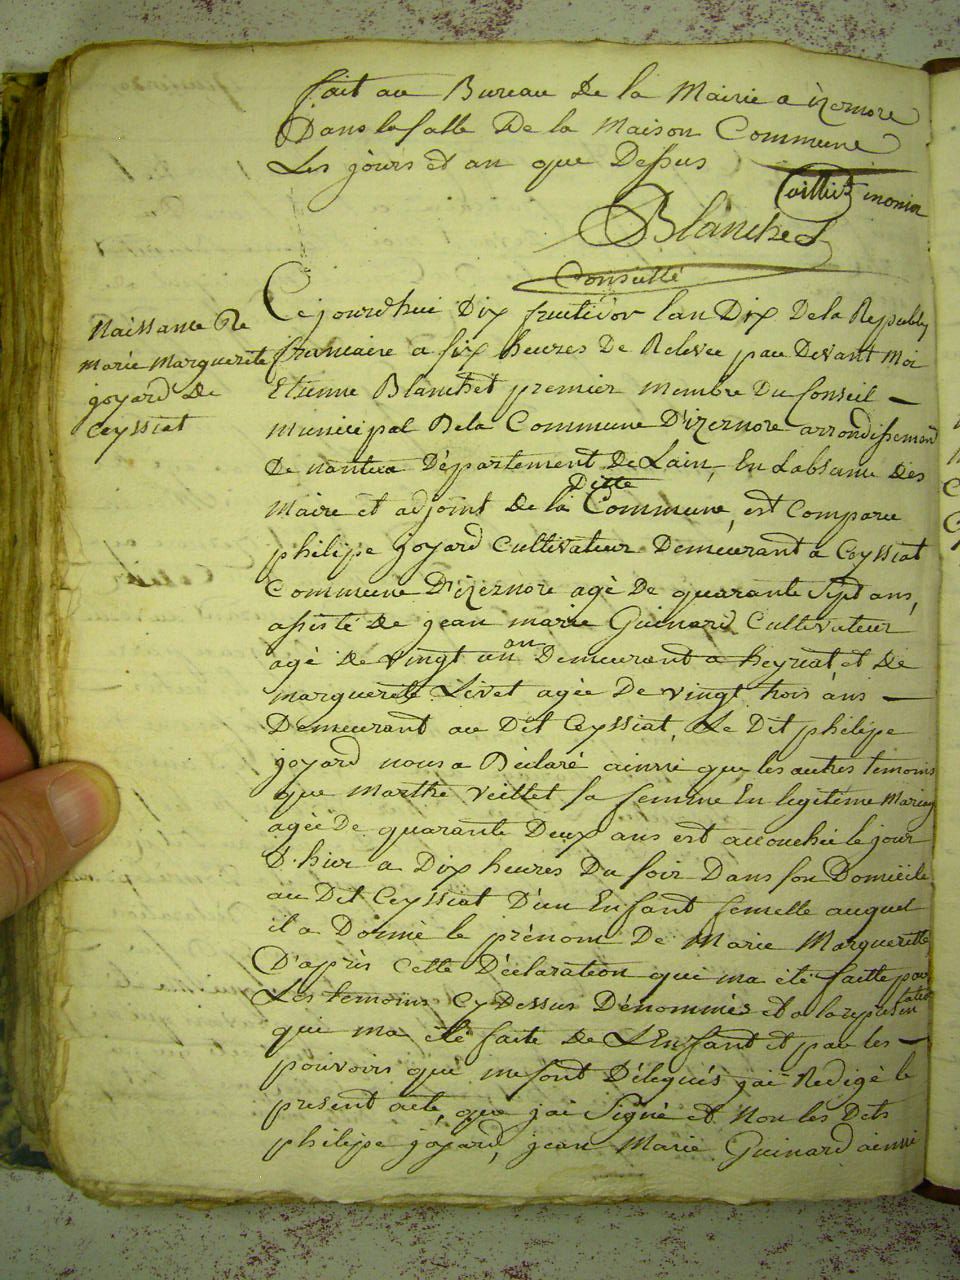 fait au Bureau De la Mairie a izernore
Dans la salle De la Maison Commune
Les jours et an que Dessus
Blanchet
Conseillé
Naissance De
marie marguerite
goyard De
Ceyssiat
Ce jourd'hui Dix fructidor lan Dix De la Republq
francaise a six heures De Relevee par Devant Moi
Etienne Blanchet premier membre Du Conseil
municipal De la Commune D'izernore arrondissement
De nantua Département De Lain, En Labsence Des
Maire et adjoint De la Ditte Commune, est Comparu
philipe goyard Cultivateur Demeurant a Ceyssiat
Commune D'izernore agé De quarante Sept ans,
assisté De jean marie Guinard Cultivateur
agé De vingt un an Demeurant a heyriat et De
marguerite Livet agée De vingt trois ans
Demeurant au Dit Ceyssiat, Le Dit philipe
goyard nous a Déclaré ainsi que les autres temoins
que Marthe veillet sa femme En legitime Mariag
agée De quarante Deux ans est accouchée le jour
D'hier a Dix heures Du soir Dans son Domicile
au Dit Ceyssiat D'un Enfant femelle auquel
il a Donné le prénom De Marie Marguerite,
D'après Cette Déclaration qui ma été faitte par
Les temoins Cy Dessus Dénommés et a la representation
qui ma été faite De L'Enfant et par les
pouvoirs qui me sont Délegués j'ai Redigé le
present acte, que j'ai Signé et Non les Dits
philipe goyard, jean Marie Guinard ainsi